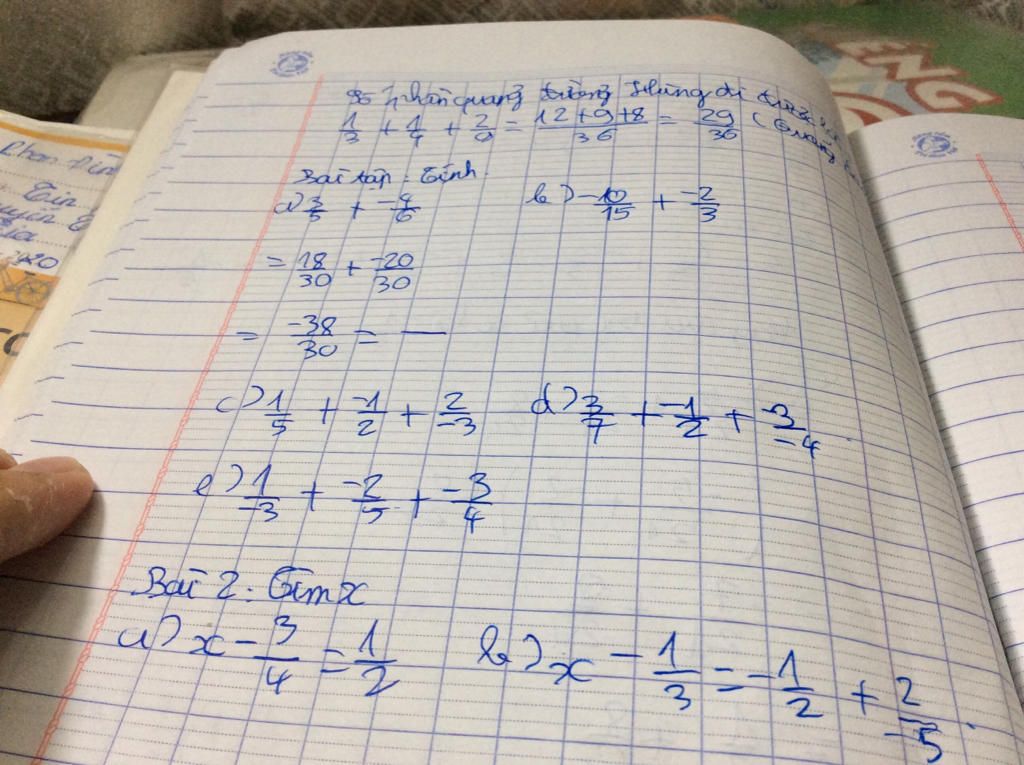 Số phần quãng đường Hùng đi
1/3 + 1/4 + 2/9 = 12+9+8/36 = 29/36 (Quãng
Bài tập: Tính.
a) 3/5 + -4/6 b) -10/15 + -2/3
= 18/30 + -20/30
= -38/30 = —
c) 1/5 + -1/2 + 2/-3 d) 3/7 + -1/2 + -3/-4
e) 1/-3 + -2/5 + -3/4
Bài 2: Tìm x
a) x - 3/4 = 1/2 b) x - 1/3 = -1/2 + 2/-5
ENG